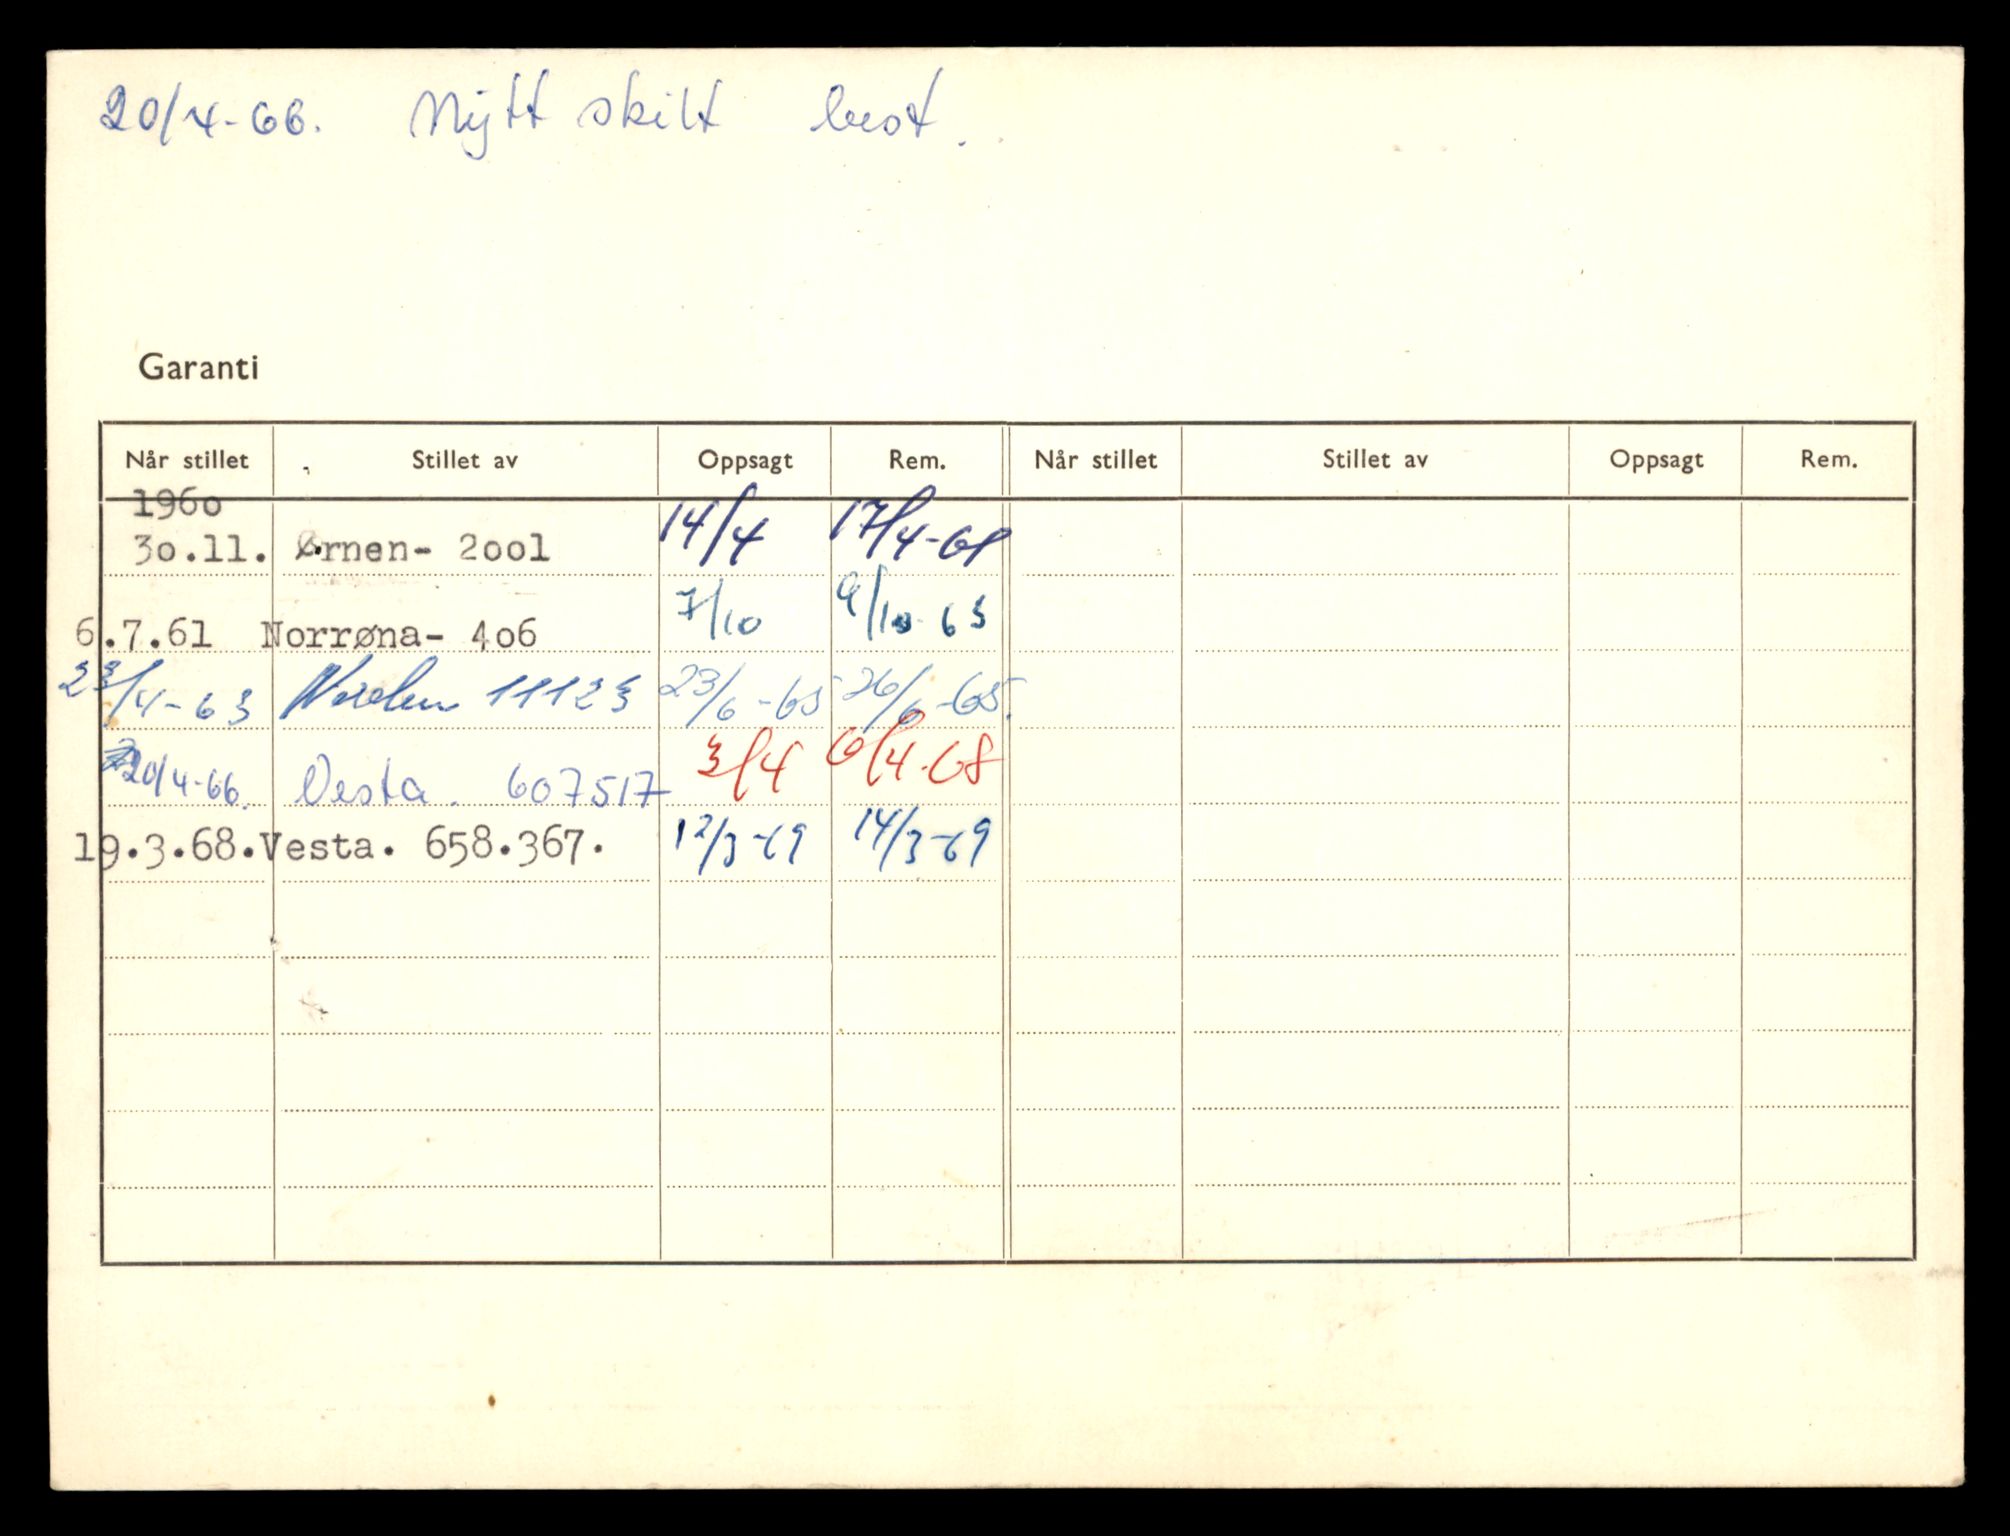 20/4-66. Nytt skilt best.
Garanti
Når stillet Stillet av Oppsagt Rem. Når stillet Stillet av Oppsagt Rem.
1960
30.11. Ørnen- 2001 14/4 17/4-61
6.7.61 Norrøna- 406 7/10 9/10-63
23/4-63 11123 23/6-65 26/6-65.
20/4-66. Vesta. 607517 3/4 6/4-68
19.3.68. Vesta. 658.367. 12/3-69 14/3-69